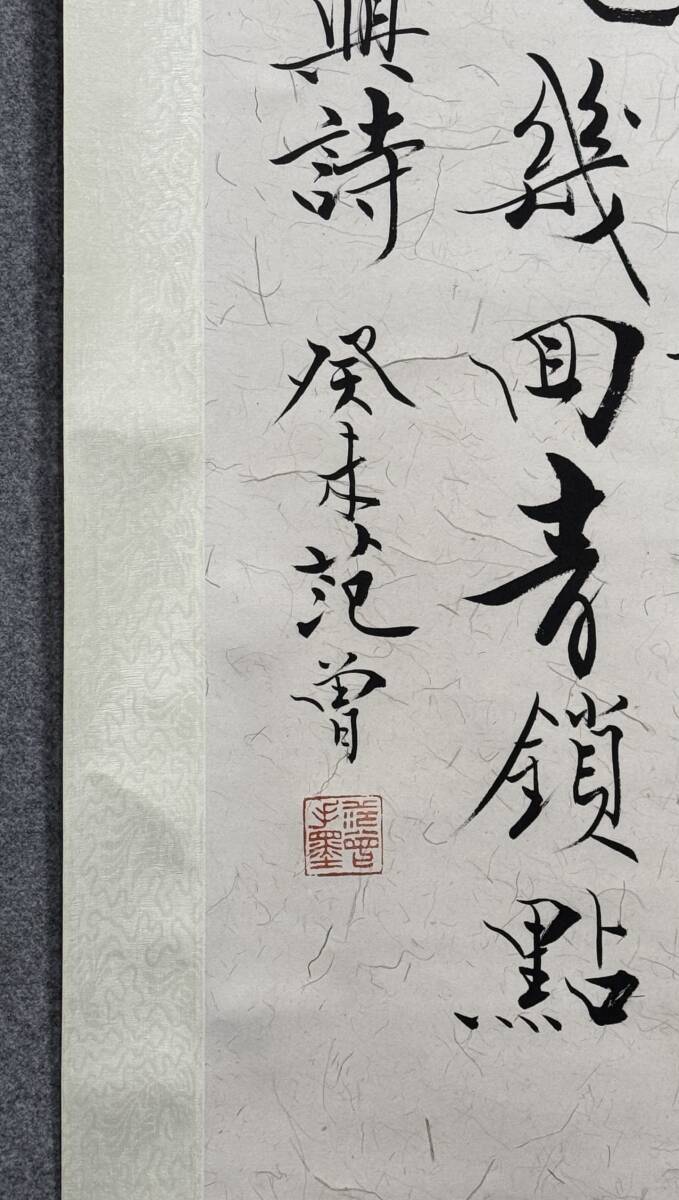 幾回青鎖點
興詩
癸未范曾
范曾手墨